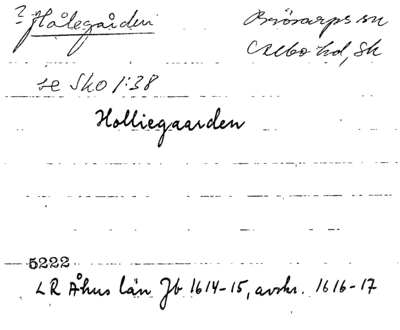 ? Hålegården Brösarps sn
Albo hd, Sk
se Sko 1:38
Holliegaarden
5222
LR Åhus län Jb 1614-15, avskr. 1616-17